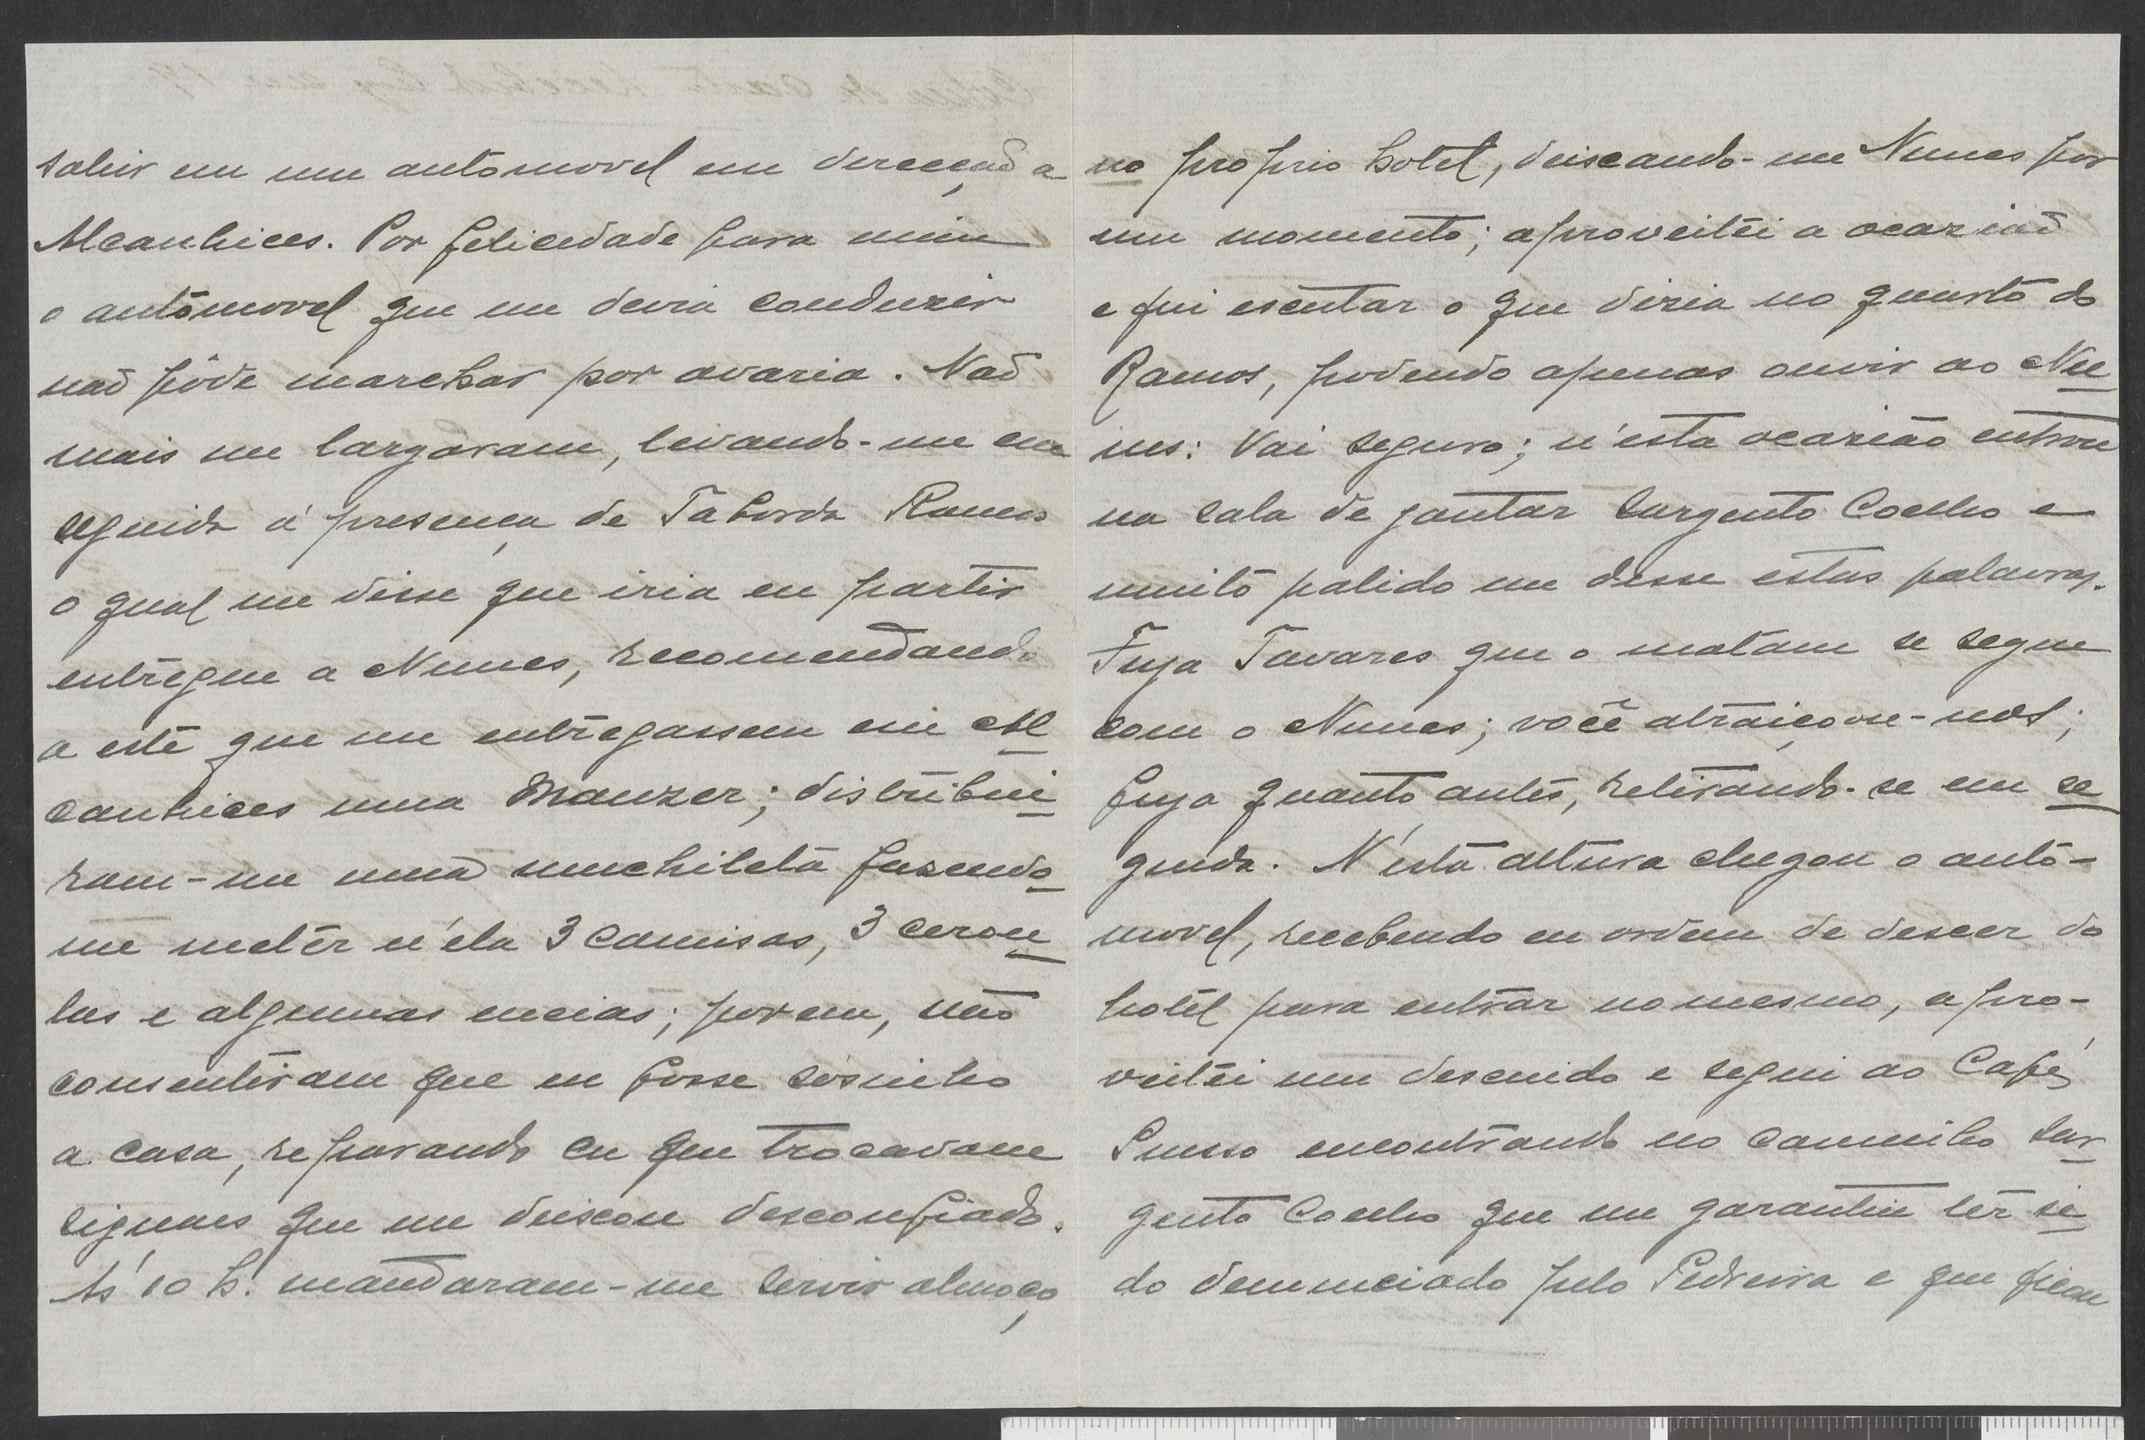 sahir em um automovel em direcçaõ a
Alcanhices. Por felicidade para mim
o automovel que me devia conduzir
naõ pôde marchar por avaria. Naõ
mais me largaram, levando-me em
seguida á presença de Taborda Ramos
o qual me disse que iria eu partir
entregue a Nunes, recomendando
a este que me entregassem em Al
canhices uma Mauzer; distribui
ram-me uma muchileta fazendo
me metêr n'éla 3 camisas, 3 cerou
las e algumas meias; porem, não
consentiram que eu fosse sósinho
a casa, reparando eu que trocavam
signaes que me deixou desconfiado.
Ás 10 h. mandaram-me servir almoço
no proprio hotel, deixando-me Nunes por
um momento; aproveitei a ocaziaõ
e fui escutar o que dizia no quarto do
Ramos, podendo apenas ouvir ao Nu
nes: Vai seguro; n'esta ocazião entrou
na sala de jantar Sargento Coelho e
muito palido me disse estas palavras.
Fuja Tavares que o matam se segue
com o Nunes; você atraiçoou-nos;
fuja quanto antes, retirando-se em se
guida. N'esta altura chegou o auto-
movel, recebendo eu ordem de descer do
hotel para entrar no mesmo, apro-
veitei um descuido e segui ao Café
Suisso encontrando no caminho Sar
gento Coelho que me garantiu têr si
do denunciado pelo Pedreira e que ficou